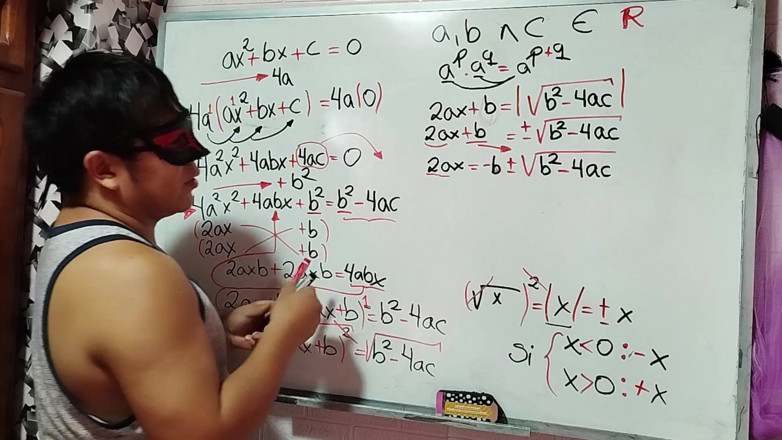 ax²+bx+c=0
4a
4a¹(ax²+bx+c)=4a(0)
4a²x²+4abx+4ac=0
+b²
4a²x²+4abx+b²=b²-4ac
(2ax +b)
(2ax +b)
2axb+2axb=4abx
x+b)¹=b²-4ac
x+b)²=√b²-4ac
a,b ∧ c ∈ R
aᵖ·a^q=a^p+q
2ax+b=|√b²-4ac|
2ax+b=±√b²-4ac
2ax=-b±√b²-4ac
(√x)²=|x|=±x
Si { x<0:-x
x>0:+x